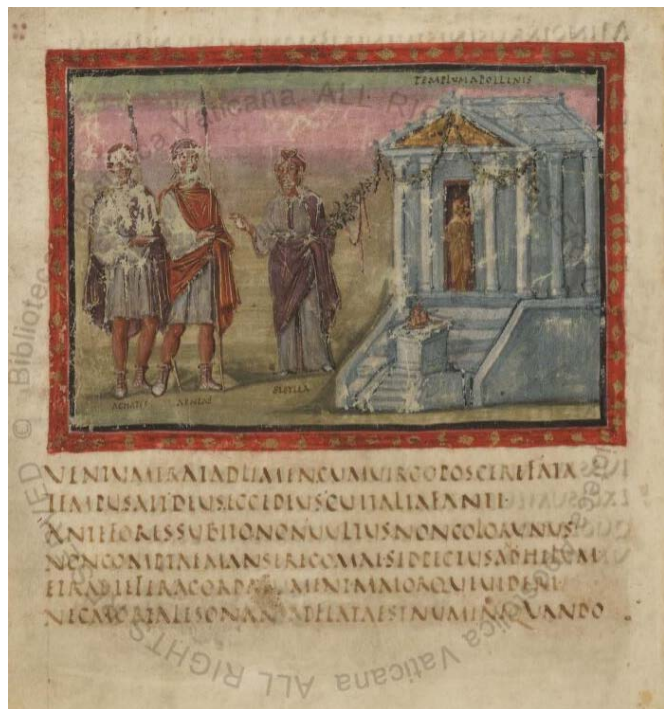 TEMPLUMAPOLLINIS
ACHATES AENEAS SIBYLLA
UENTUMERATADLIMENCUMUIRGOPOSCEREFATA
TEMPUSAITDEUSECCEDEUSCUITALIAFANTI
ANTEFORESSUBITONONUULTUSNONCOLORUNUS
NONCOMPTAEMANSERECOMAESEDPECTUSANHELUM
ETRABIEFERACORDATUMENTMAIORQUEUIDERI
NECMORTALESONANSADFLATAESTNUMINEQUANDO
© Biblioteca Apostolica Vaticana ALL RIGHTS RESERVED